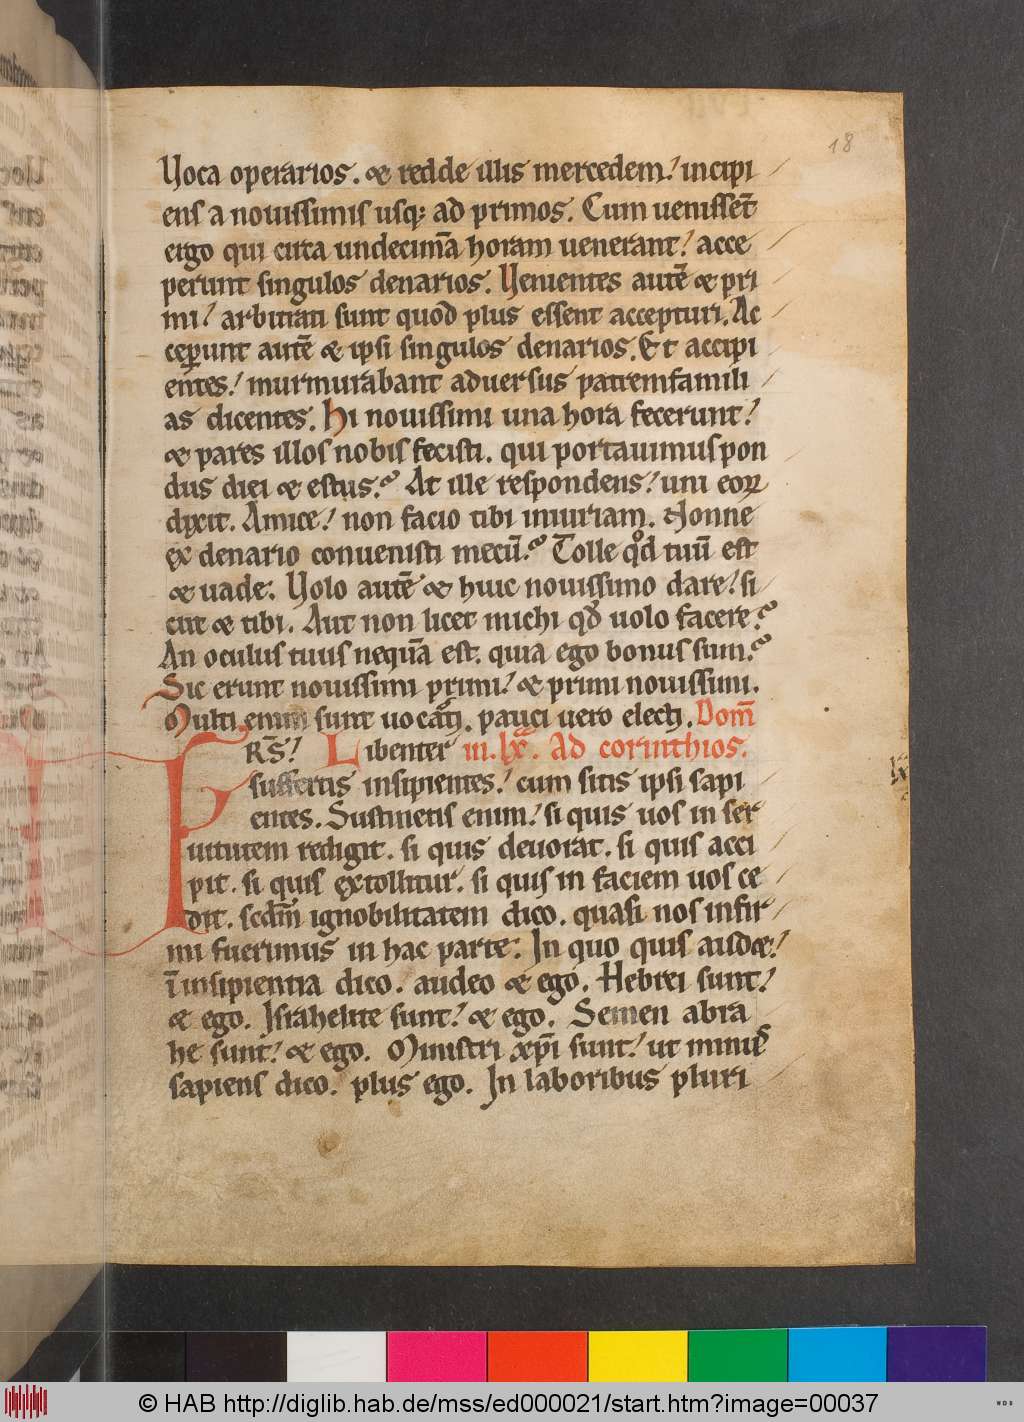 18
Uoca operarios. & redde illis mercedem! incipi
ens a nouissimis usq; ad primos. Cum uenissēt
ergo qui circa undecimā horam uenerant! acce
perunt singulos denarios. Uenientes autē & pri
mi! arbitrati sunt quod plus essent accepturi. Ac
ceperunt autē & ipsi singulos denarios. Et accipi
entes! murmurabant aduersus patremfamili
as dicentes. Hi nouissimi una hora fecerunt!
& pares illos nobis fecisti. qui portauimus pon
dus diei & estus. At ille respondens! uni eoꝝ
dixit. Amice! non facio tibi iniuriam. Nonne
ex denario conuenisti mecū. Tolle qd tuū est
& uade. Uolo autē & huic nouissimo dare! si
cut & tibi. Aut non licet michi qd uolo facere.
An oculus tuus nequā est. quia ego bonus sum.
Sic erunt nouissimi primi! & primi nouissimi.
Multi enim sunt uocati. pauci uero electi. Dom̄
FRS̄! Libenter in. lx̄. Ad corinthios.
suffertis insipientes! cum sitis ipsi sapi
entes. Sustinetis enim! si quis uos in ser
uitutem redigit. si quis deuorat. si quis acci
pit. si quis extollitur. si quis in faciem uos ce
dit. scdm̄ ignobilitatem dico. quasi nos infir
mi fuerimus in hac parte. In quo quis audet!
ī insipientia dico. audeo & ego. Hebrei sunt!
& ego. Israhelite sunt! & ego. Semen abra
he sunt! & ego. Ministri xp̄i sunt! ut minus
sapiens dico. plus ego. In laboribus pluri
© HAB http://diglib.hab.de/mss/ed000021/start.htm?image=00037